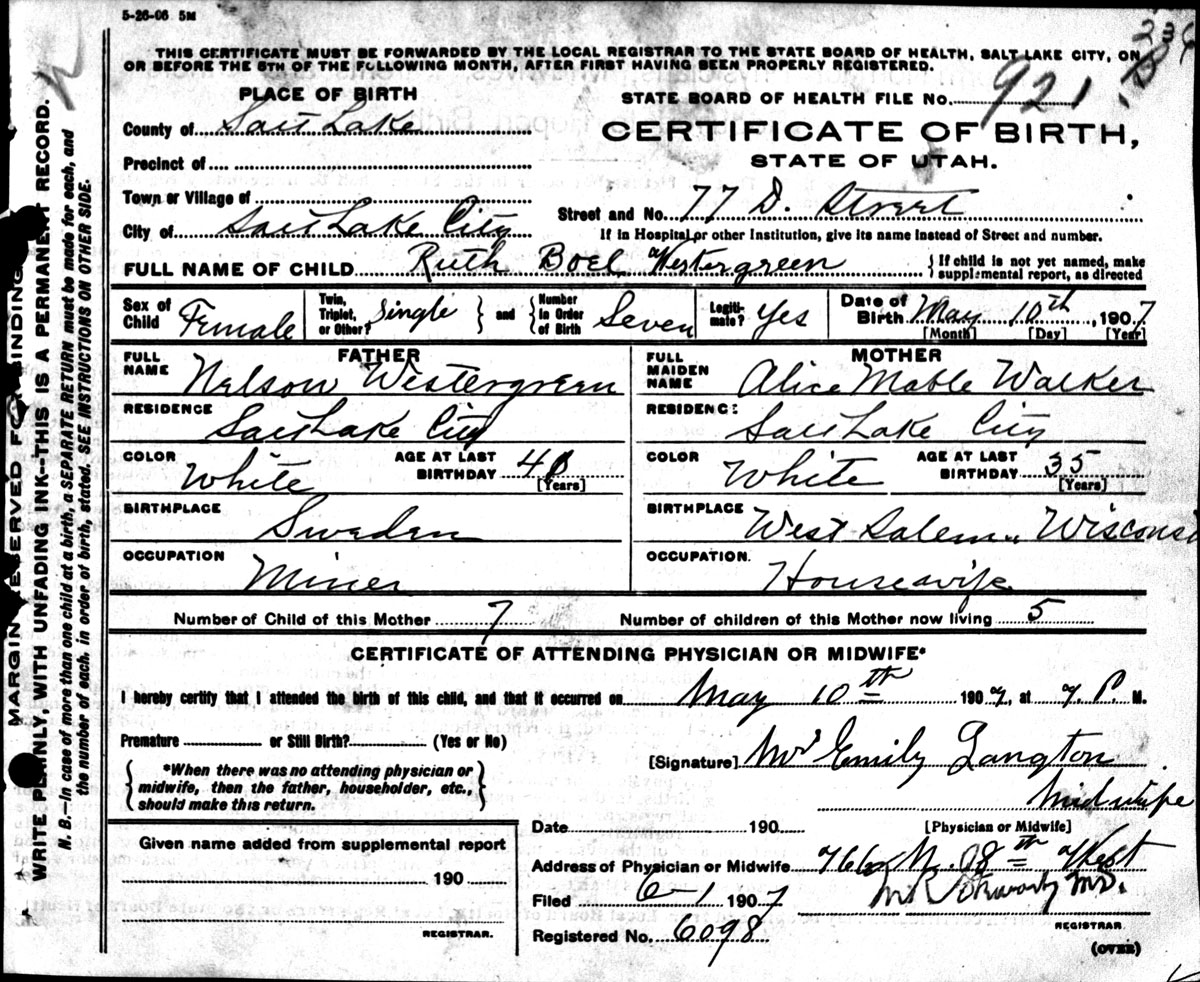 5-26-06 5M
THIS CERTIFICATE MUST BE FORWARDED BY THE LOCAL REGISTRAR TO THE STATE BOARD OF HEALTH, SALT LAKE CITY, ON
OR BEFORE THE 5TH OF THE FOLLOWING MONTH, AFTER FIRST HAVING BEEN PROPERLY REGISTERED.
PLACE OF BIRTH
STATE BOARD OF HEALTH FILE No. 921
County of Salt Lake
CERTIFICATE OF BIRTH,
STATE OF UTAH.
Precinct of
Town or Village of
Street and No. 77 D. Street
City of Salt Lake City
If in Hospital or other Institution, give its name instead of Street and number.
FULL NAME OF CHILD Ruth Boel Westergreen
{If child is not yet named, make
supplemental report, as directed
Sex of Child Female
Twin, Triplet, or Other? Single } and { Number in Order of Birth Seven
Legiti-mate? Yes
Date of Birth May 10th, 1907
[Month] [Day] [Year]
FATHER
FULL NAME Nelson Westergreen
RESIDENCE Salt Lake City
COLOR White AGE AT LAST BIRTHDAY
[Years]
BIRTHPLACE Sweden
OCCUPATION Miner
MOTHER
FULL MAIDEN NAME Alice Mable Walker
RESIDENCE Salt Lake City
COLOR White AGE AT LAST BIRTHDAY 35
[Years]
BIRTHPLACE West Salem Wisconsi
OCCUPATION. Housewife
Number of Child of this Mother 7 Number of children of this Mother now living 5
CERTIFICATE OF ATTENDING PHYSICIAN OR MIDWIFE*
I hereby certify that I attended the birth of this child, and that it occurred on May 10th 1907, at 7. P. M.
Premature or Still Birth? (Yes or No)
{*When there was no attending physician or
midwife, then the father, householder, etc.,
should make this return.}
[Signature] Mrs Emily Langton
Midwife
[Physician or Midwife]
Given name added from supplemental report
190
REGISTRAR.
Date 190
Address of Physician or Midwife N. 8th West
Filed 6-1 1907 M.D.
REGISTRAR.
Registered No. 6098
(OVER)
MARGIN RESERVED FOR BINDING
WRITE PLAINLY, WITH UNFADING INK--THIS IS A PERMANENT RECORD.
N. B.—In case of more than one child at a birth, a SEPARATE RETURN must be made for each, and
the number of each, in order of birth, stated. SEE INSTRUCTIONS ON OTHER SIDE.